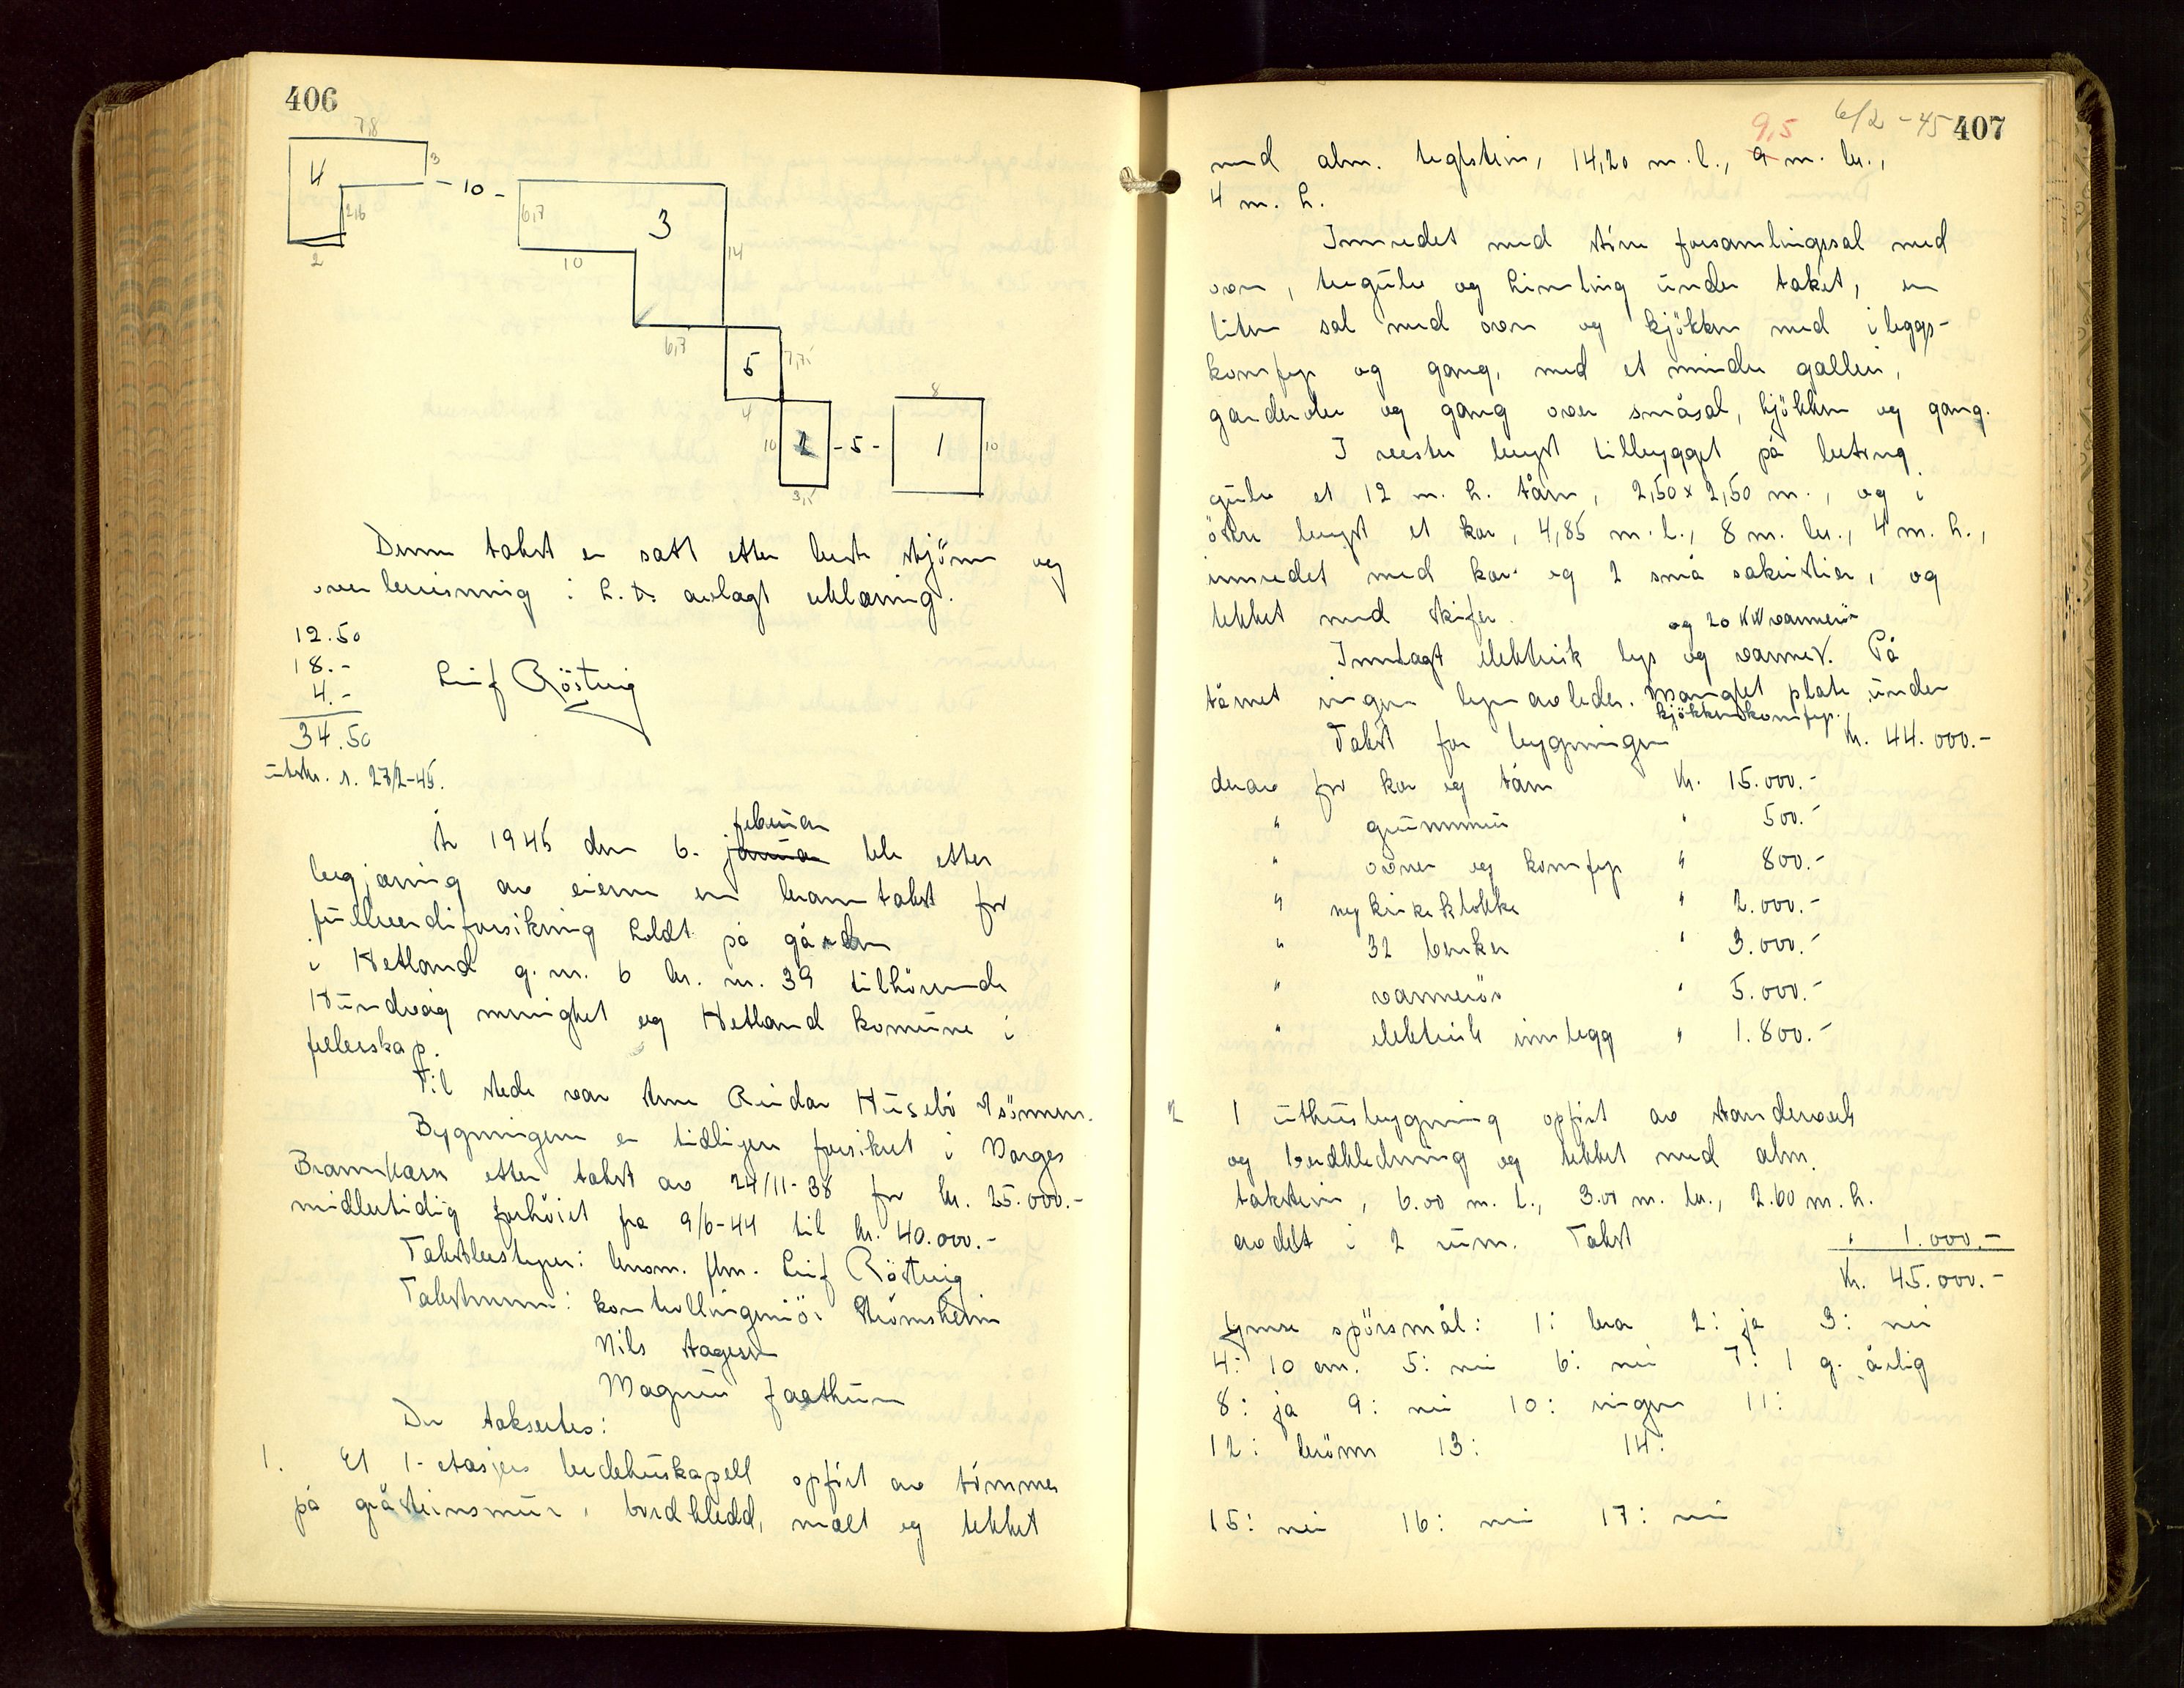 406
7,8
4
3
- 10 -
2,6
2
6,7
3
10
14
6,7
5
7,75
4
10
2
- 5 -
3,5
8
1
10
Denne takst er satt etter beste skjönn og
overbevisning i h.t. avlagt erklæring.
12.50
18.-
4.-
34.50
Leif Röstvig
utskr. s. 27/2-45.
År 1945 den 6. januar februar ble etter
begjæring av eieren en branntakst for
fullverdiforsikring holdt på gården
i Hetland g.nr. 6 br. nr. 39 tilhörende
Hundvåg menighet og Hetland komune i
fellesskap.
Til stede var herr Reidar Husebö
Bygningene er tidligere forsikret i Norges
Brannkasse etter takst av 24/11-38 for kr. 25.000.-
midlertidig forhöiet fra 9/6-44 til kr. 40.000.-
Takstbestyrer: lensm. flm. Leif Röstvig
Takstmenn: kontrollingeniör Strömsheim
Nils Aagesen
Magnus Jaathun
Der taksertes:
1. Et 1-etasjers bedehuskapell opfört av tömmer
på gråsteinsmur, bordkledd, malt og tekket
6/2-45 407
med alm. teglstein, 14,20 m. l., 9 9,5 m. br.,
4 m. h.
Innredet med större forsamlingssal med
ovn, tregulv og himling under taket, en
liten sal med ovn og kjökken med ileggs-
komfyr og gang, med et mindre galleri,
garderobe og gang over småsal, kjökken og gang.
I vestre langst tilbygget på betong
gulv et 12 m. h. tårn, 2,50 x 2,50 m., og i
östre langst et kor, 4,85 m. l., 8 m. br., 4 m. h.,
innredet med kor og 2 små sakristier, og
tekket med skifer.
og 20 KW varmeovn
Inntagt elektrisk lys og varme. På
tårnet ingen lynavleder. Mangler plate under
kjökkenkomfyr.
Takst for bygningen kr. 44.000.-
derav for kor og tårn kr. 15.000.-
" grunnmur " 500.-
" ovner og komfyr " 800.-
" ny kirkeklokke " 2.000.-
" 32 benker " 3.000.-
" varmeovn " 5.000.-
" elektrisk innlegg " 1.800.-
2 1 uthusbygning opfört av standerverk
og bordkledning og tekket med alm.
takstein, 6.00 m. l., 3.00 m. br., 2.60 m. h.
avdelt i 2 rum. Takst " 1.000.-
Kr. 45.000.-
Ymse spörsmål: 1: bra 2: ja 3: nei
4: 10 cm. 5: nei 6: nei 7: 1 g. årlig
8: ja 9: nei 10: ingen 11:
12: brönn 13: 14:
15: nei 16: nei 17: nei